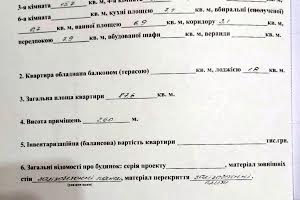 3-а кімната 15.2 кв. м, 4-а кімната кв. м,
6-а кв. м, кухні площею 7.4 кв. м, вбиральні (сполученої)
кв. м, ванни площею кв. м, коридору 3.1 кв. м,
передпокою 7.9 кв. м, вбудованої шафи кв. м, веранди
2. Квартира обладнана балконом (терасою) кв. м, лоджією кв. м
3. Загальна площа квартири 87.6 кв. м.
4. Висота приміщень 2.60 м.
5. Інвентаризаційна (балансова) вартість квартири тис.грн.
6. Загальні відомості про будинок: серія проекту , матеріал зовнішніх
стін залізобетонні панелі, матеріал перекриття залізобетонні
плити